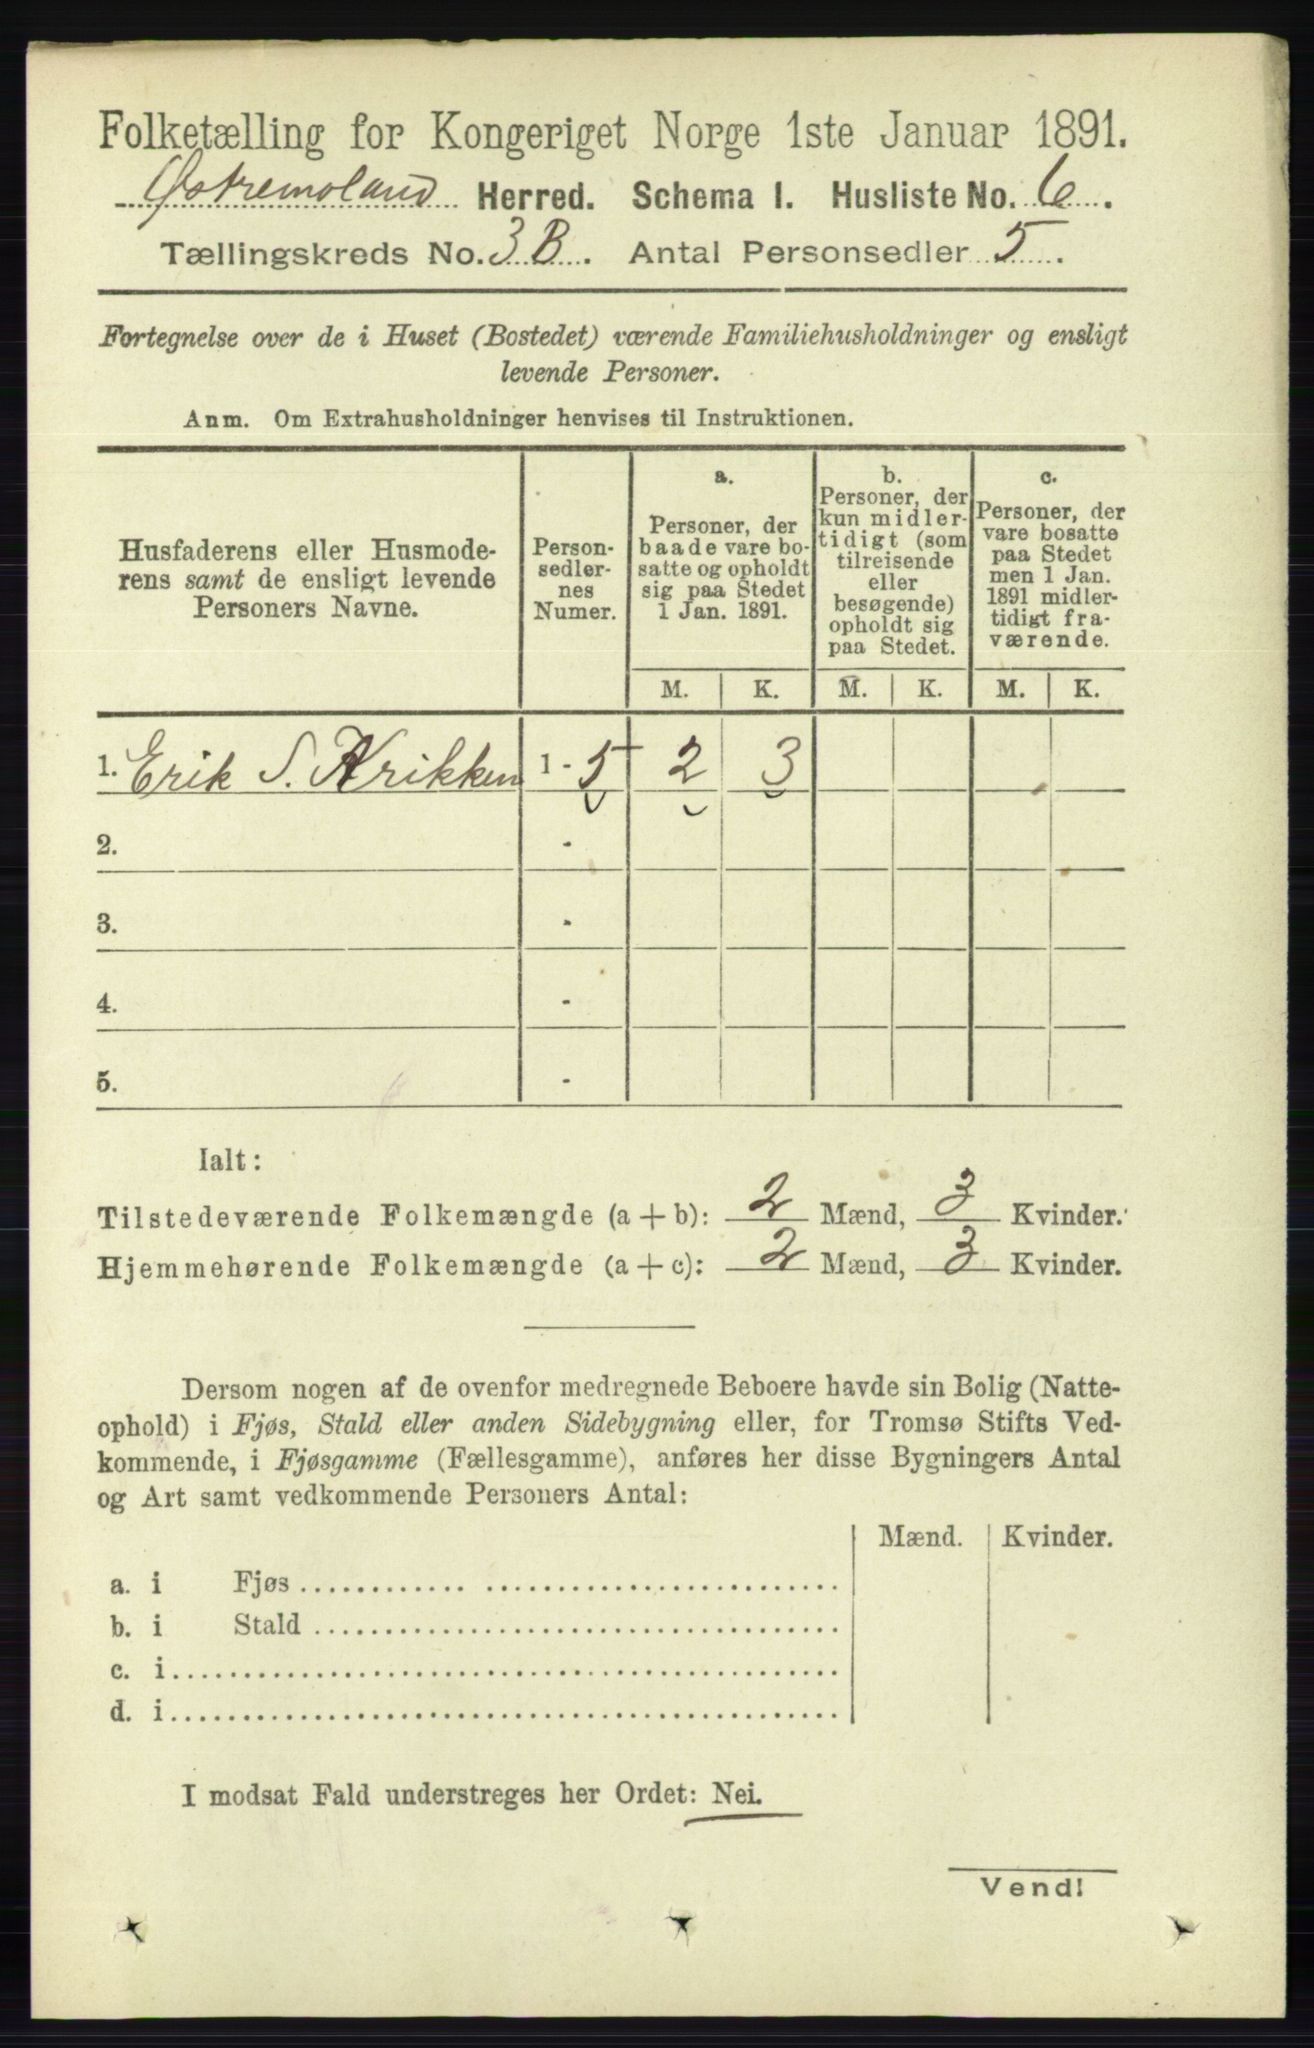 Folketælling for Kongeriget Norge 1ste Januar 1891.
Østremoland Herred. Schema I. Husliste No. 6.
Tællingskreds No. 3 B. Antal Personsedler 5.
Fortegnelse over de i Huset (Bostedet) værende Familiehusholdninger og ensligt
levende Personer.
Anm. Om Extrahusholdninger henvises til Instruktionen.
Husfaderens eller Husmode-
rens samt de ensligt levende
Personers Navne.
Person-
sedler-
nes
Numer.
a.
Personer, der
baade vare bo-
satte og opholdt
sig paa Stedet
1 Jan. 1891.
b.
Personer, der
kun midler-
tidigt (som
tilreisende
eller
besøgende)
opholdt sig
paa Stedet.
c.
Personer, der
vare bosatte
paa Stedet
men 1 Jan.
1891 midler-
tidigt fra-
værende.
M. K. M. K. M. K.
1. Erik S. Krikken 1 - 5 2 3
2. -
3. -
4. -
5. -
Ialt:
Tilstedeværende Folkemængde (a + b): 2 Mænd, 3 Kvinder.
Hjemmehørende Folkemængde (a + c): 2 Mænd, 3 Kvinder.
Dersom nogen af de ovenfor medregnede Beboere havde sin Bolig (Natte-
ophold) i Fjøs, Stald eller anden Sidebygning eller, for Tromsø Stifts Ved-
kommende, i Fjøsgamme (Fællesgamme), anføres her disse Bygningers Antal
og Art samt vedkommende Personers Antal:
Mænd. Kvinder.
a. i Fjøs
b. i Stald
c. i
d. i
I modsat Fald understreges her Ordet: Nei.
Vend!